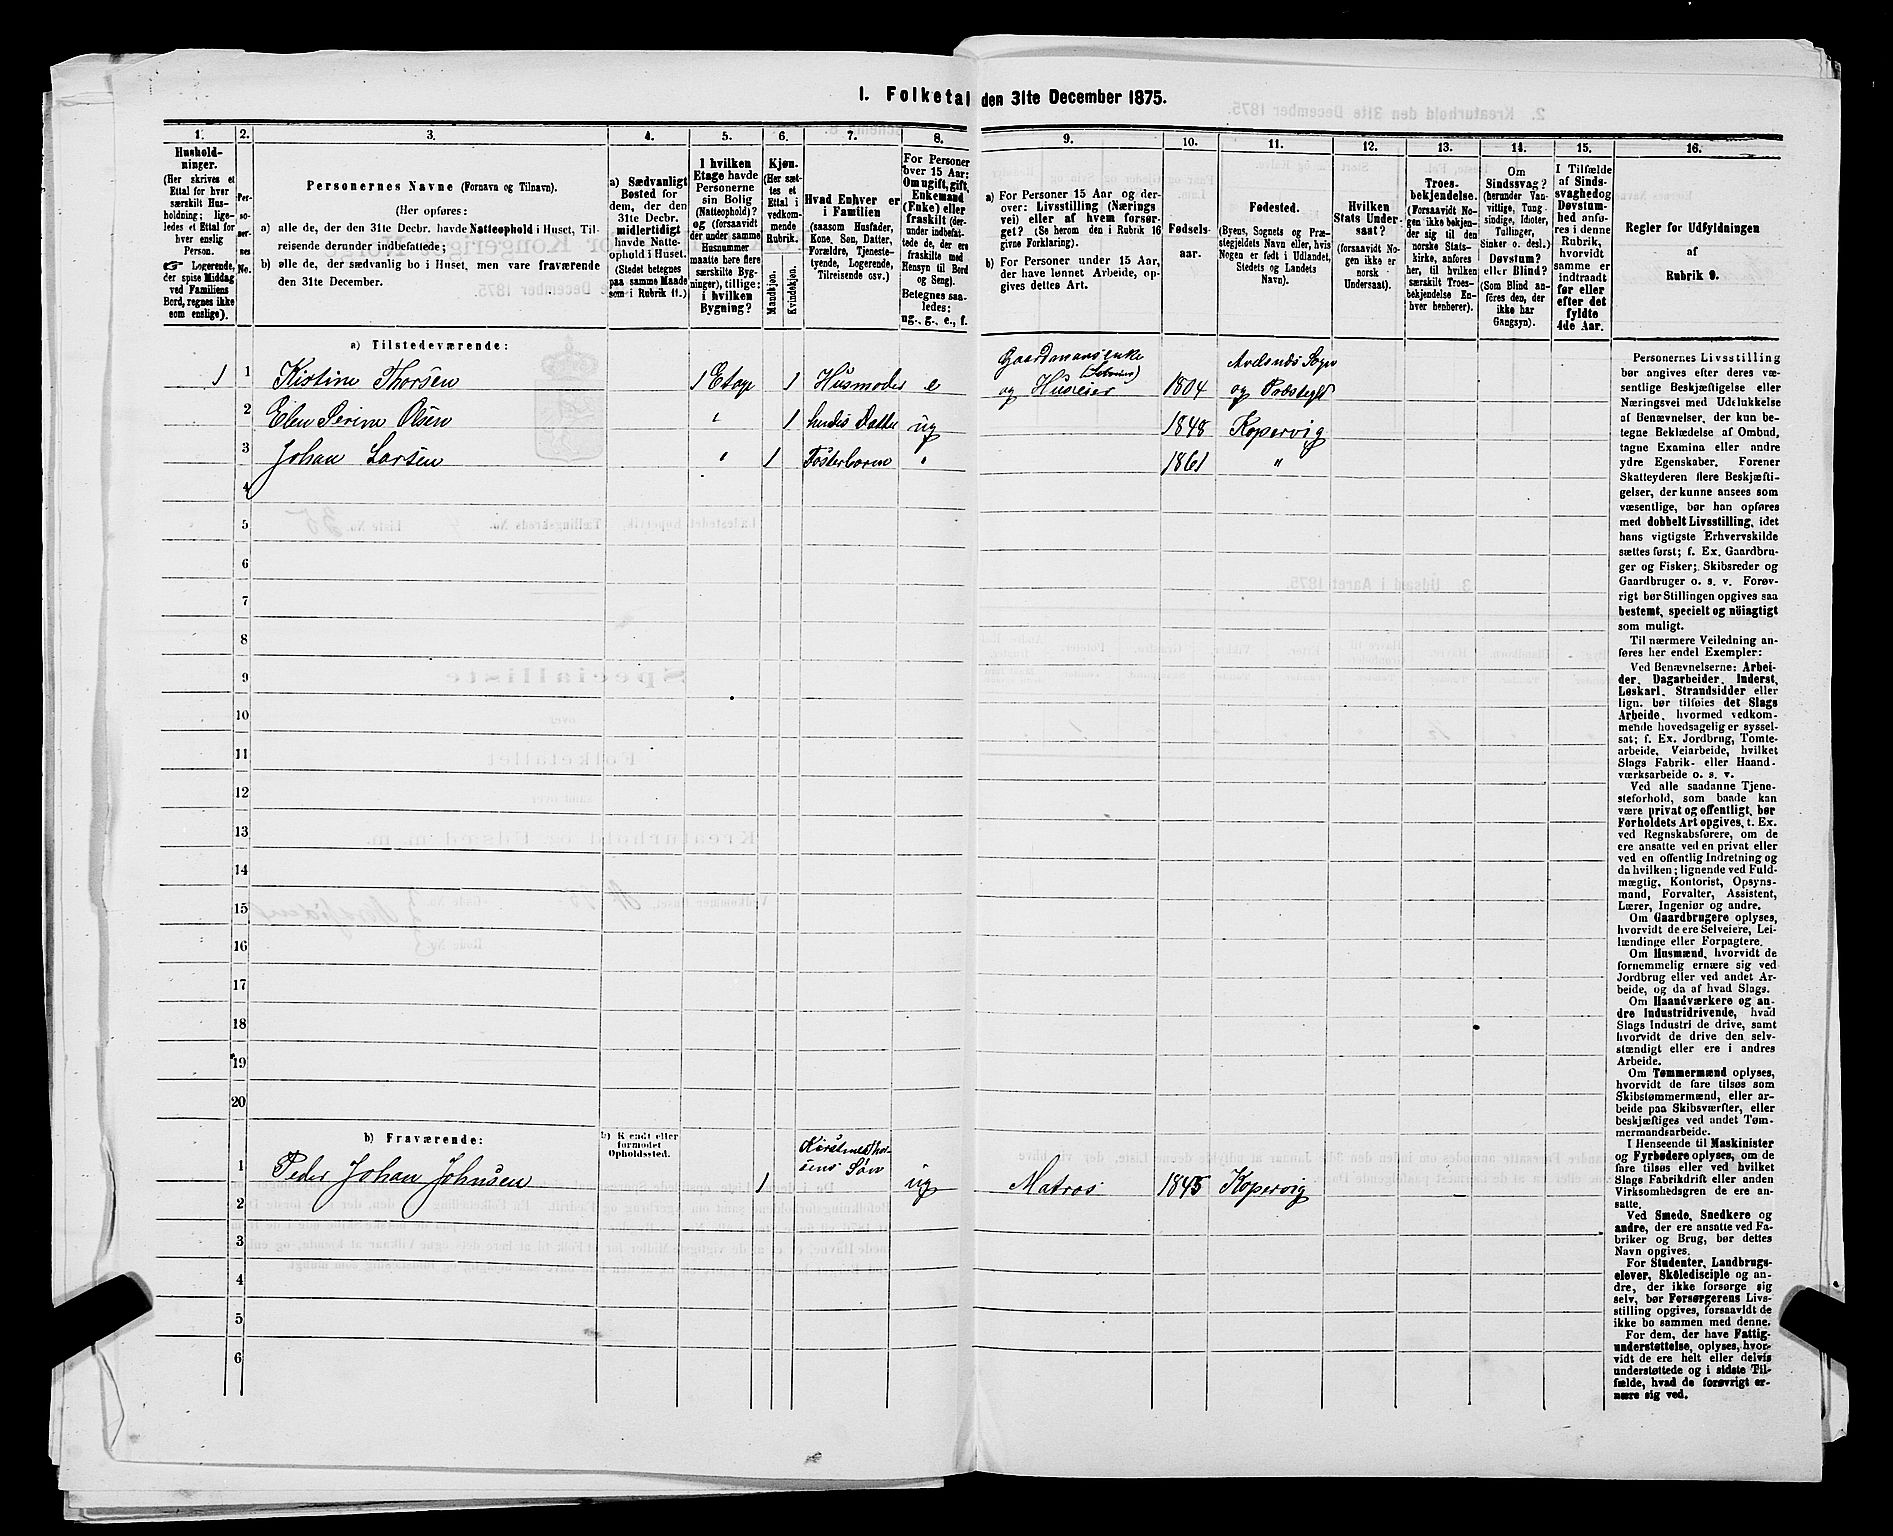 I. Folketal den 31te December 1875.
1.
Hushold-
ninger.
(Her skrives et
Ettal for hver
særskilt Hus-
holdning; lige-
ledes et Ettal for
hver enslig
Person.
☞ Logerende,
der spise Middag
ved Familiens
Bord, regnes ikke
som enslige).
2.
Per-
so-
ner-
nes
No.
3.
Personernes Navne (Fornavn og Tilnavn).
(Her opføres:
a) alle de, der den 31te Decbr. havde Natteophold i Huset, Til-
reisende derunder indbefattede;
b) alle de, der sædvanlig bo i Huset, men vare fraværende
den 31te December.
4.
a) Sædvanligt
Bosted for
dem, der den
31te Decbr.
midlertidigt
havde Natte-
ophold i Huset.
(Stedet betegnes
paa samme Maade
som i Rubrik 11.)
5.
I hvilken
Etage havde
Personerne
sin Bolig
(Natteophold)?
og (forsaavidt
der under samme
Husnummer
maatte høre flere
særskilte Byg-
ninger), tillige:
i hvilken
Bygning?
6.
Kjøn.
(Her sæt-
tes et
Ettal i
vedkom-
mende
Rubrik.
Mandkjøn.
Kvindekjøn.
7.
Hvad Enhver er
i Familien
(saasom Husfader,
Kone, Søn, Datter,
Forældre, Tjeneste-
tyende, Logerende,
Tilreisende osv.)
8.
For Personer
over 15 Aar:
Om ugift, gift,
Enkemand
(Enke) eller
fraskilt (der-
under indbefat-
tede de, der ere
fraskilte med
Hensyn til Bord
og Seng).
Betegnes saa-
ledes:
ug., g., e., f.
9.
a) For Personer 15 Aar og der-
over: Livsstilling (Nærings
vei) eller af hvem forsør-
get? (Se herom den i Rubrik 16
givne Forklaring).
b) For Personer under 15 Aar,
der have lønnet Arbeide, op-
gives dettes Art.
10.
Fødsels-
aar.
11.
Fødested.
(Byens, Sognets og Præ-
stegjeldets Navn eller, hvis
Nogen er født i Udlandet,
Stedets og Landets
Navn).
12.
Hvilken
Stats Under-
saat?
(forsaavidt No-
gen ikke er
norsk
Undersaat).
13.
Troes-
bekjendelse.
(Forsaavidt No-
gen ikke bekjen-
der sig til den
norske Stats-
kirke, anføres
her, til hvilken
særskilt Troes-
bekjendelse En-
hver henhører).
14.
Om
Sindssvag?
(herunder Van-
vittige, Tung-
sindige, Idioter,
Tullinger,
Sinker o. desl.)
Døvstum?
eller Blind?
(Som Blind an-
føres den, der
ikke har
Gangsyn).
15.
I Tilfælde
af Sinds-
svaghed og
Døvstum-
hed anfø-
res i denne
Rubrik,
hvorvidt
samme er
indtraadt
før eller
efter det
fyldte
4de Aar.
16.
Regler for Udfyldningen
af
Rubrik 9.
a) Tilstedeværende:
1 1 Kistine Thorsen 1 Etage 1 Husmoder e Gaardmansenke og Huseier 1804 Avelsnds Sogn og Præstegld
2 Elen Serine Olsen " 1 hendes Datter ug 1848 Kopervig
3 Johan Larsen " 1 Fosterbarn " 1861 "
4
5
6
7
8
9
10
11
12
13
14
15
16
17
18
19
20
b) Fraværende:
b) Kendt eller
formodet
Opholdssted.
1 Peder Johan Johnsen 1 Kirstine Thorsens Søn ug Matros 1845 Kopervig
2
3
4
5
6
Personernes Livsstilling
bør angives efter deres væ-
sentlige Beskjæftigelse eller
Næringsvei med Udelukkelse
af Benævnelser, der kun be-
tegne Beklædelse af Ombud,
tagne Examina eller andre
ydre Egenskaber. Forener
Skatteyderen flere Beskjæfti-
gelser, der kunne ansees som
væsentlige, bør han opføres
med dobbelt Livsstilling, idet
hans vigtigste Erhvervskilde
sættes først; f. Ex. Gaardbru-
ger og Fisker; Skibsreder og
Gaardbruger o. s. v. Forøv-
rigt bør Stillingen opgives saa
bestemt, specielt og nöiagtigt
som muligt.
Til nærmere Veiledning an-
føres her endel Exempler:
Ved Benævnelserne: Arbei-
der, Dagarbeider, Inderst,
Løskarl, Strandsidder eller
lign. bør tilføies det Slags
Arbeide, hvormed vedkom-
mende hovedsagelig er syssel-
sat; f. Ex. Jordbrug, Tomte-
arbeide, Veiarbeide, hvilket
Slags Fabrik- eller Haand-
værksarbeide o. s. v.
Ved alle saadanne Tjene-
steforhold, som baade kan
være privat og offentligt, bør
Forholdets Art opgives, t. Ex.
ved Regnskabsførere, om de
ere ansatte ved en privat eller
ved en offentlig Indretning og
da hvilken; lignende ved Fuld-
mægtig, Kontorist, Opsyns-
mand, Forvalter, Assistent,
Lærer, Ingeniør og andre.
Om Gaardbrugere oplyses,
hvorvidt de ere Selveiere, Lei-
lændinge eller Forpagtere.
Om Husmænd, hvorvidt de
fornemmelig ernære sig ved
Jordbrug eller ved andet Ar-
beide, og da af hvad Slags.
Om Haandværkere og an-
dre Industridrivende, hvad
Slags Industri de drive, samt
hvorvidt de drive den selv-
stændigt eller ere i andres
Arbeide.
Om Tømmermænd oplyses,
hvorvidt de fare tilsøs som
Skibstømmermænd, eller ar-
beide paa Skibsværfter, eller
beskjæftiges ved andet Tøm-
mermandsarbeide.
I Henseende til Maskinister
og Fyrbødere oplyses, om de
fare tilsøs eller ved hvilket
Slags Fabrikdrift eller anden
Virksomhedsgren de ere an-
satte.
Ved Smede, Snedkere og
andre, der ere ansatte ved Fa-
briker og Brug, bør dettes
Navn opgives.
For Studenter, Landbrugs-
elever, Skoledisciple og an-
dre, der ikke forsørge sig
selv, bør Forsørgerens Livs-
stilling opgives, forsaavidt de
ikke bo sammen med denne.
For dem, der have Fattig-
understøttelse, oplyses, hvor-
vidt de ere helt eller delvis
understøttede og i sidste Til-
fælde, hvad de forøvrigt er-
nære sig ved.